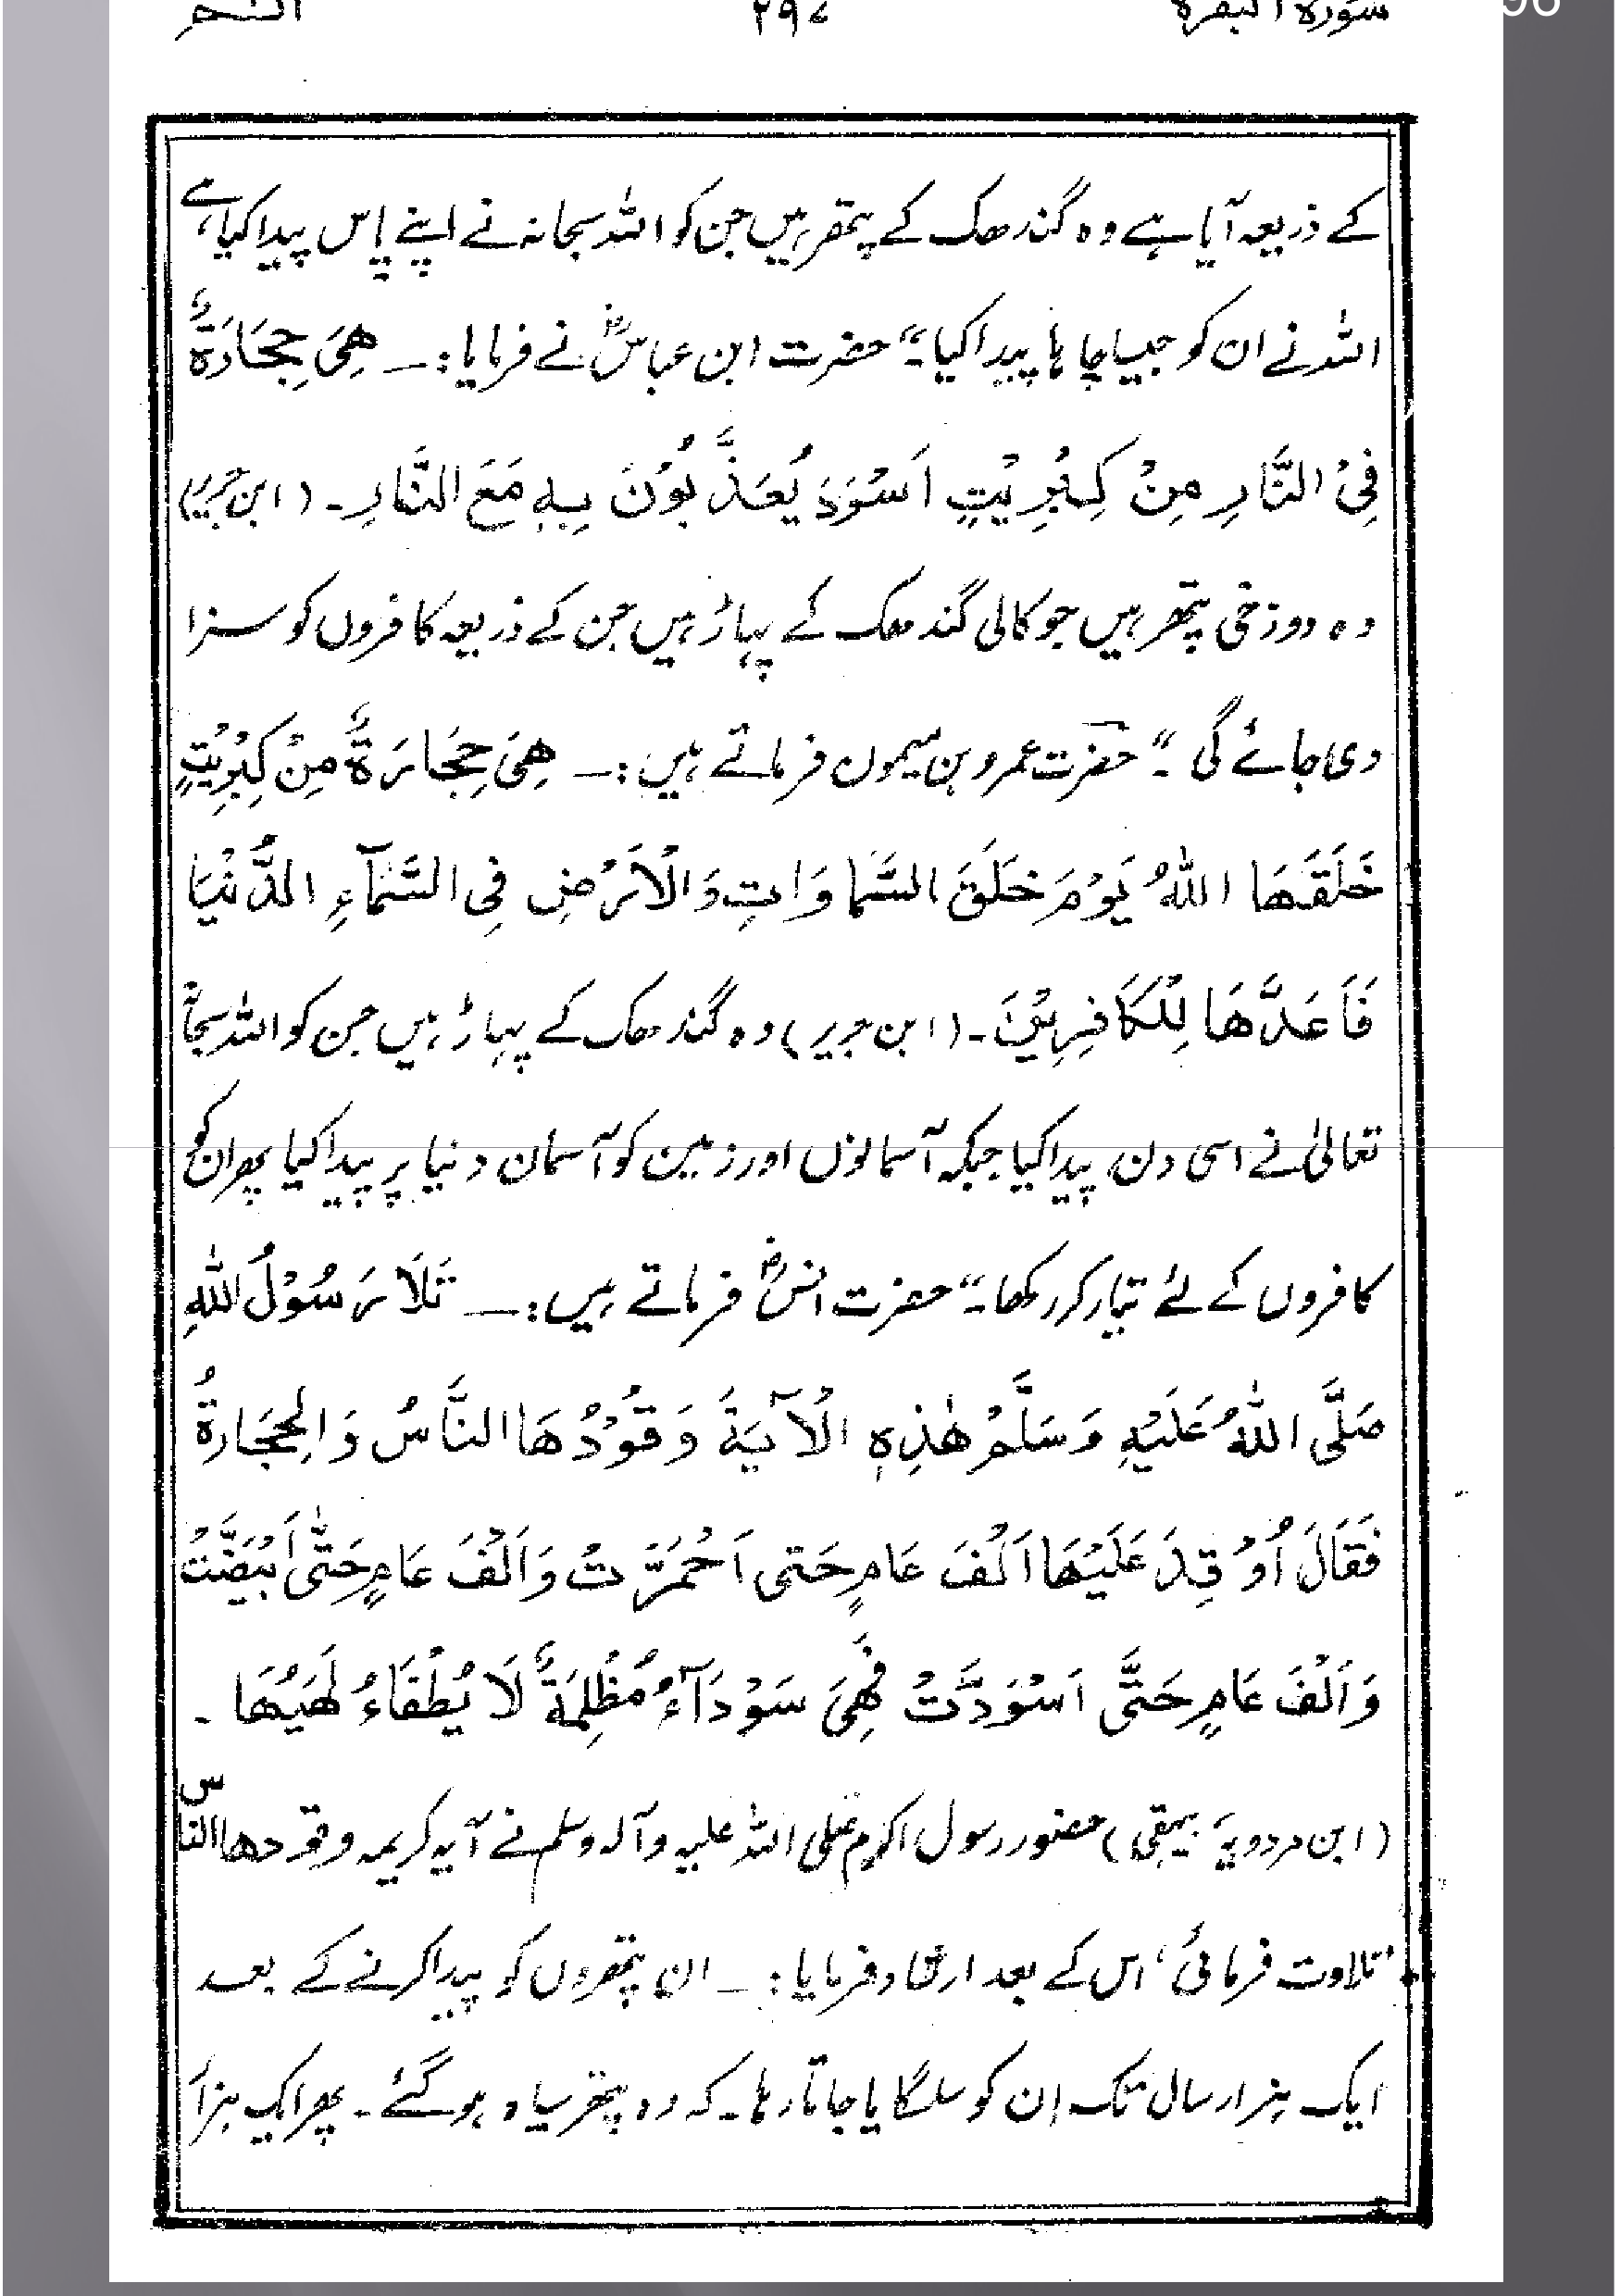 سورۃ البقرۃ ۲۹۷
96
کے ذریعہ آیا ہے وہ گندھک کے پتھر ہیں جن کو اللہ سبحانہ نے اپنے پاس پیدا کیا ہے،
اللہ نے ان کو جیسا چاہا پیدا کیا۔“ حضرت ابن عباسؓ نے فرمایا :۔ ھِیَ حِجَارَۃٌ
فِیْ النَّارِ مِنْ کِبْرِیْتٍ اَسْوَدَ یُعَذَّبُوْنَ بِہٖ مَعَ النَّارِ۔ (ابن جریر)
وہ دوزخی پتھر ہیں جو کالی گندھک کے پہاڑ ہیں جن کے ذریعہ کافروں کو سزا
دی جائے گی ۔“ حضرت عمرو بن میمون فرماتے ہیں :۔ ھِیَ حِجَارَۃٌ مِنْ کِبْرِیْتٍ
خَلَقَھَا اللّٰہُ یَوْمَ خَلَقَ السَّمَاوَاتِ وَالْاَرْضِ فِی السَّمَآءِ الدُّنْیَا
فَاَعَدَّھَا لِلْکَافِرِیْنَ۔ (ابن جریر) وہ گندھک کے پہاڑ ہیں جن کو اللہ سبحانہٗ
تعالیٰ نے اسی دن پیدا کیا جبکہ آسمانوں اور زمین کو آسمان دنیا پر پیدا کیا پھر ان کو
کافروں کے لئے تیار کر رکھا۔“ حضرت انسؓ فرماتے ہیں :۔ تَلَا رَسُوْلُ اللّٰہِ
صَلَّی اللّٰہُ عَلَیْہِ وَسَلَّمْ ھٰذِہٖ الْاٰیَۃَ وَقُوْدُھَا النَّاسُ وَالْحِجَارَۃُ
فَقَالَ اُوْقِدَ عَلَیْھَا اَلْفَ عَامٍ حَتی اَحْمَرَّتْ وَاَلْفَ عَامٍ حَتّٰی اَبْیَضَّتْ
وَاَلْفَ عَامٍ حَتَّی اَسْوَدَّتْ فَھِیَ سَوْدَآءُ مُظْلِمَۃٌ لَا یُطْفَاءُ لَھَیُھَا ۔
(ابن مردویہ، بیہقی) حضور رسول اکرم صلی اللہ علیہ وآلہ وسلم نے آیہ کریمہ وقودھا الناس
تلاوت فرمائی، اس کے بعد ارشاد فرمایا :۔ ان پتھروں کو پیدا کرنے کے بعد
ایک ہزار سال تک ان کو سلگایا جاتا رہا۔ کہ وہ پتھر سیاہ ہوگئے۔ پھر ایک ہزار